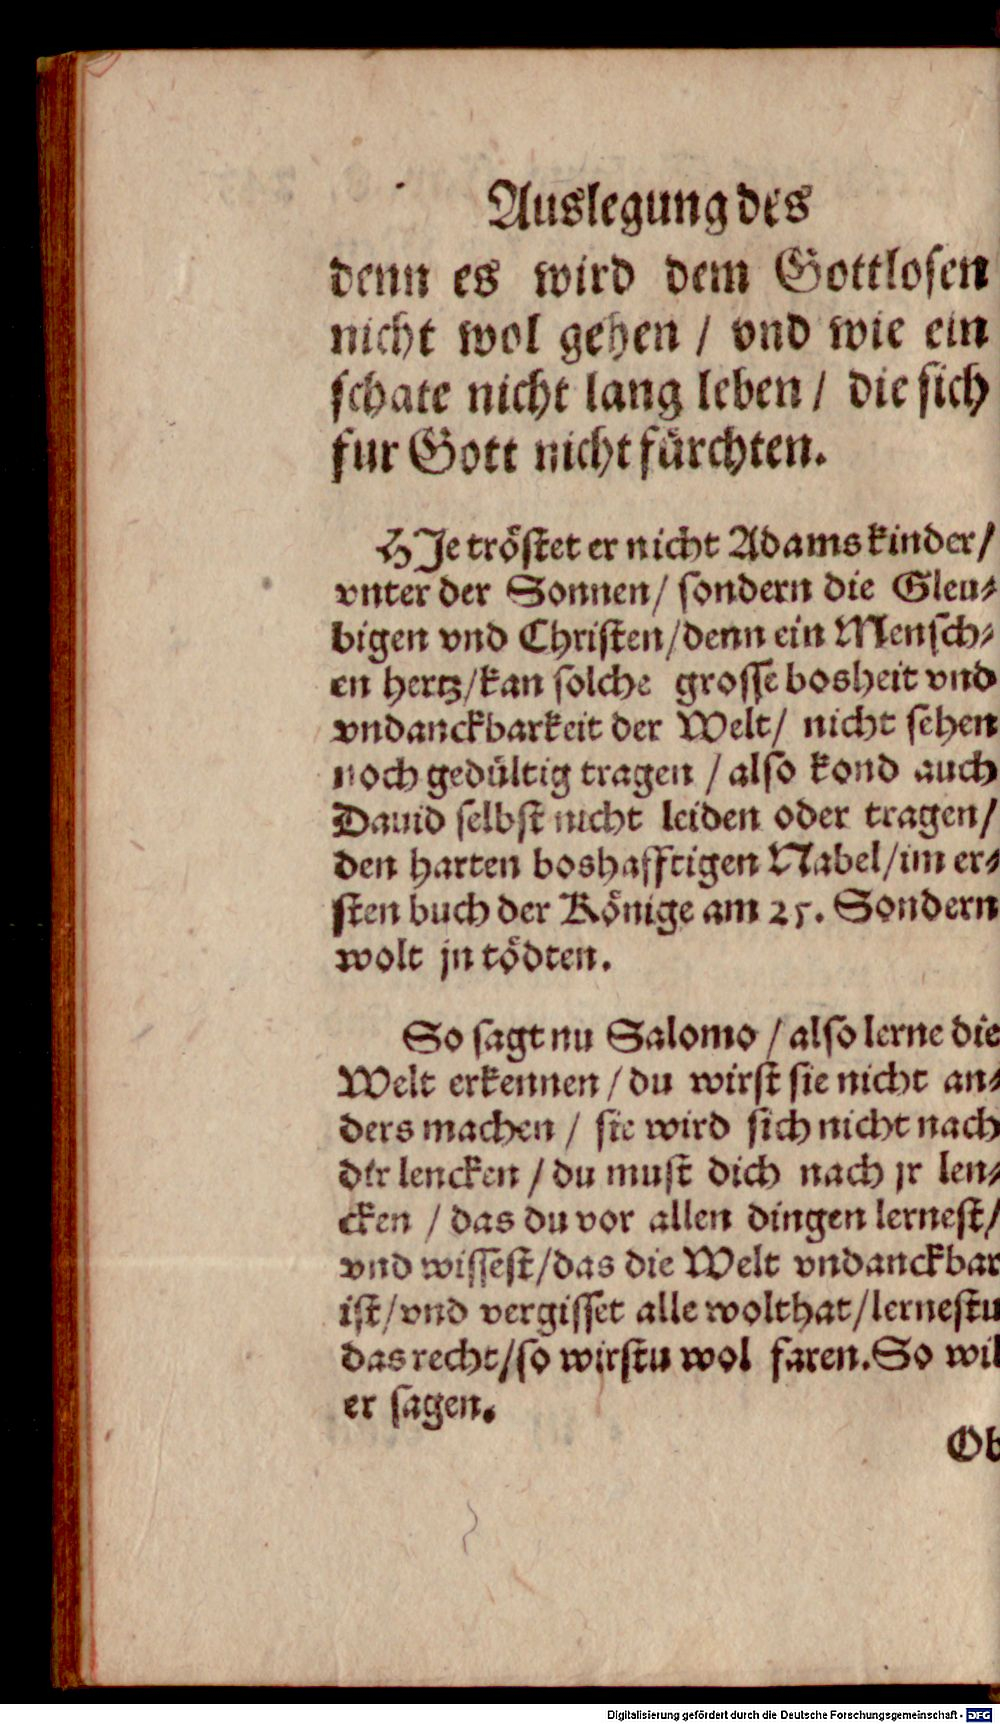 Auslegung des
denn es wird dem Gottlosen
nicht wol gehen / vnd wie ein
schate nicht lang leben / die sich
fur Gott nicht fürchten.
HJe tröstet er nicht Adams kinder /
vnter der Sonnen / sondern die Gleu-
bigen vnd Christen / denn ein Mensch-
en hertz / kan solche grosse bosheit vnd
vndanckbarkeit der Welt / nicht sehen
noch gedültig tragen / also kond auch
Dauid selbst nicht leiden oder tragen /
den harten boshafftigen Nabel / im er-
sten buch der Könige am 25. Sondern
wolt jn tödten.
So sagt nu Salomo / also lerne die
Welt erkennen / du wirst sie nicht an-
ders machen / sie wird sich nicht nach
dir lencken / du must dich nach jr len-
cken / das du vor allen dingen lernest /
vnd wissest / das die Welt vndanckbar
ist / vnd vergisset alle wolthat / lernestu
das recht / so wirstu wol faren. So wil
er sagen.
Ob
Digitalisierung gefördert durch die Deutsche Forschungsgemeinschaft - DFG